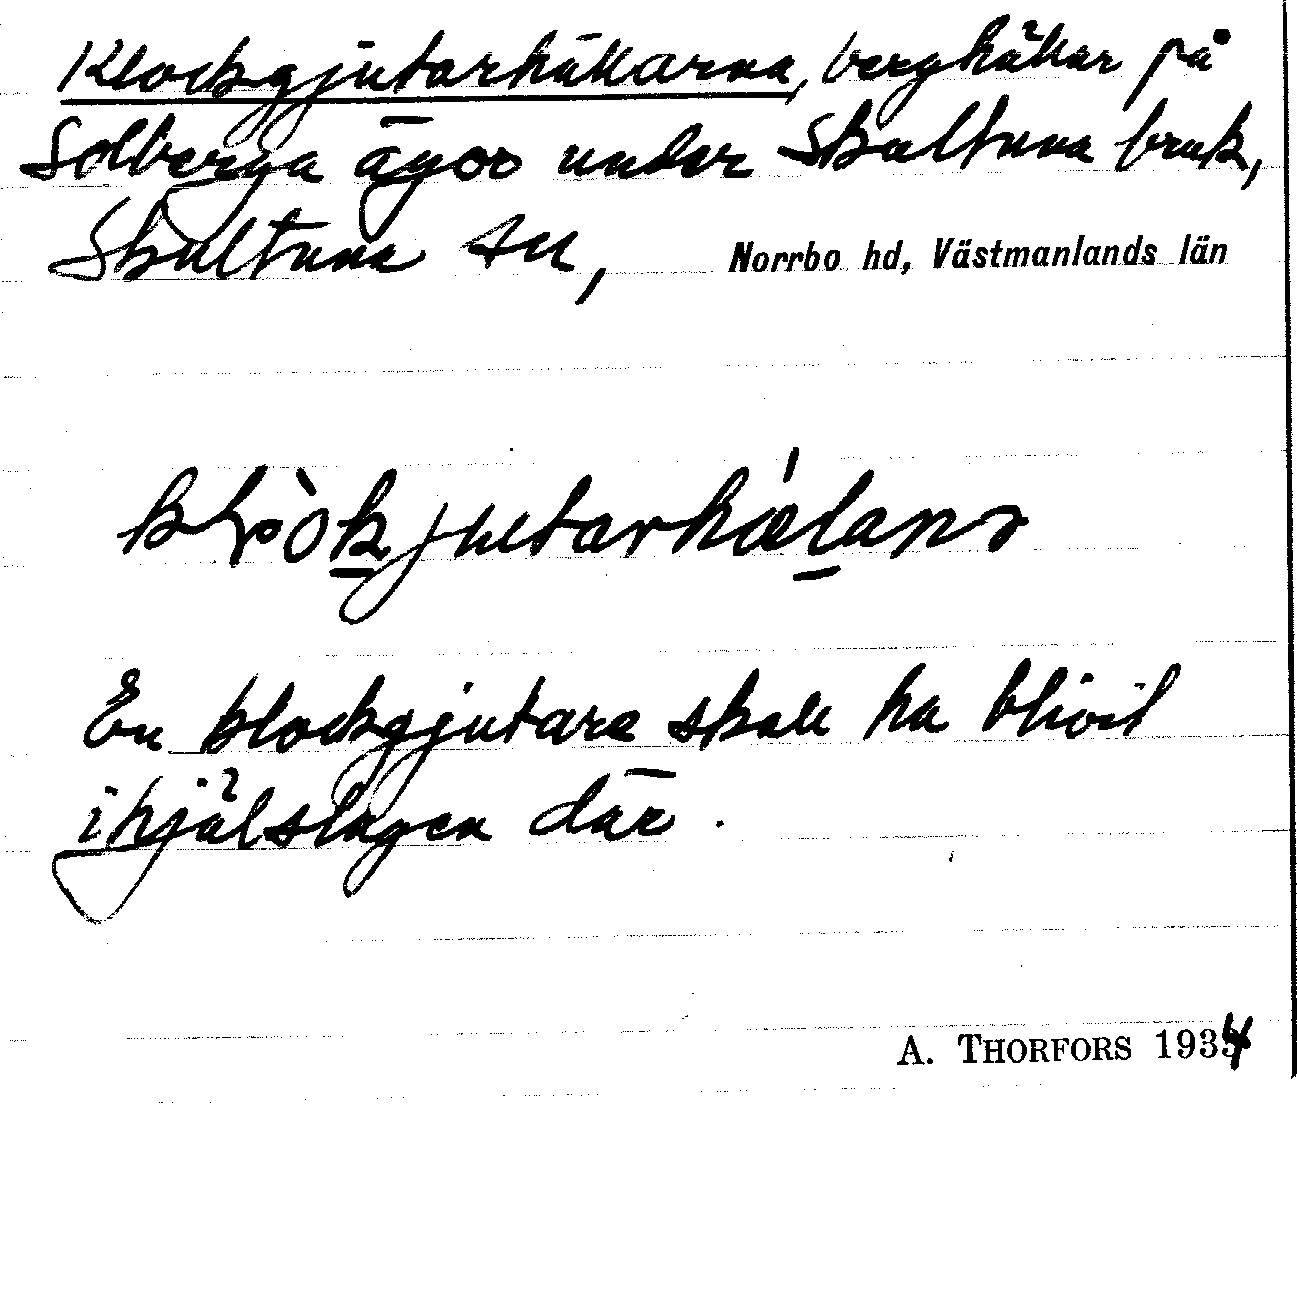 Klockgjutarhällarna, berghällar på
Solberga ägor under Skultuna bruk,
Skultuna sn, Norrbo hd, Västmanlands län
En klockgjutare skall ha blivit
ihjälslagen där.
A. THORFORS 1934